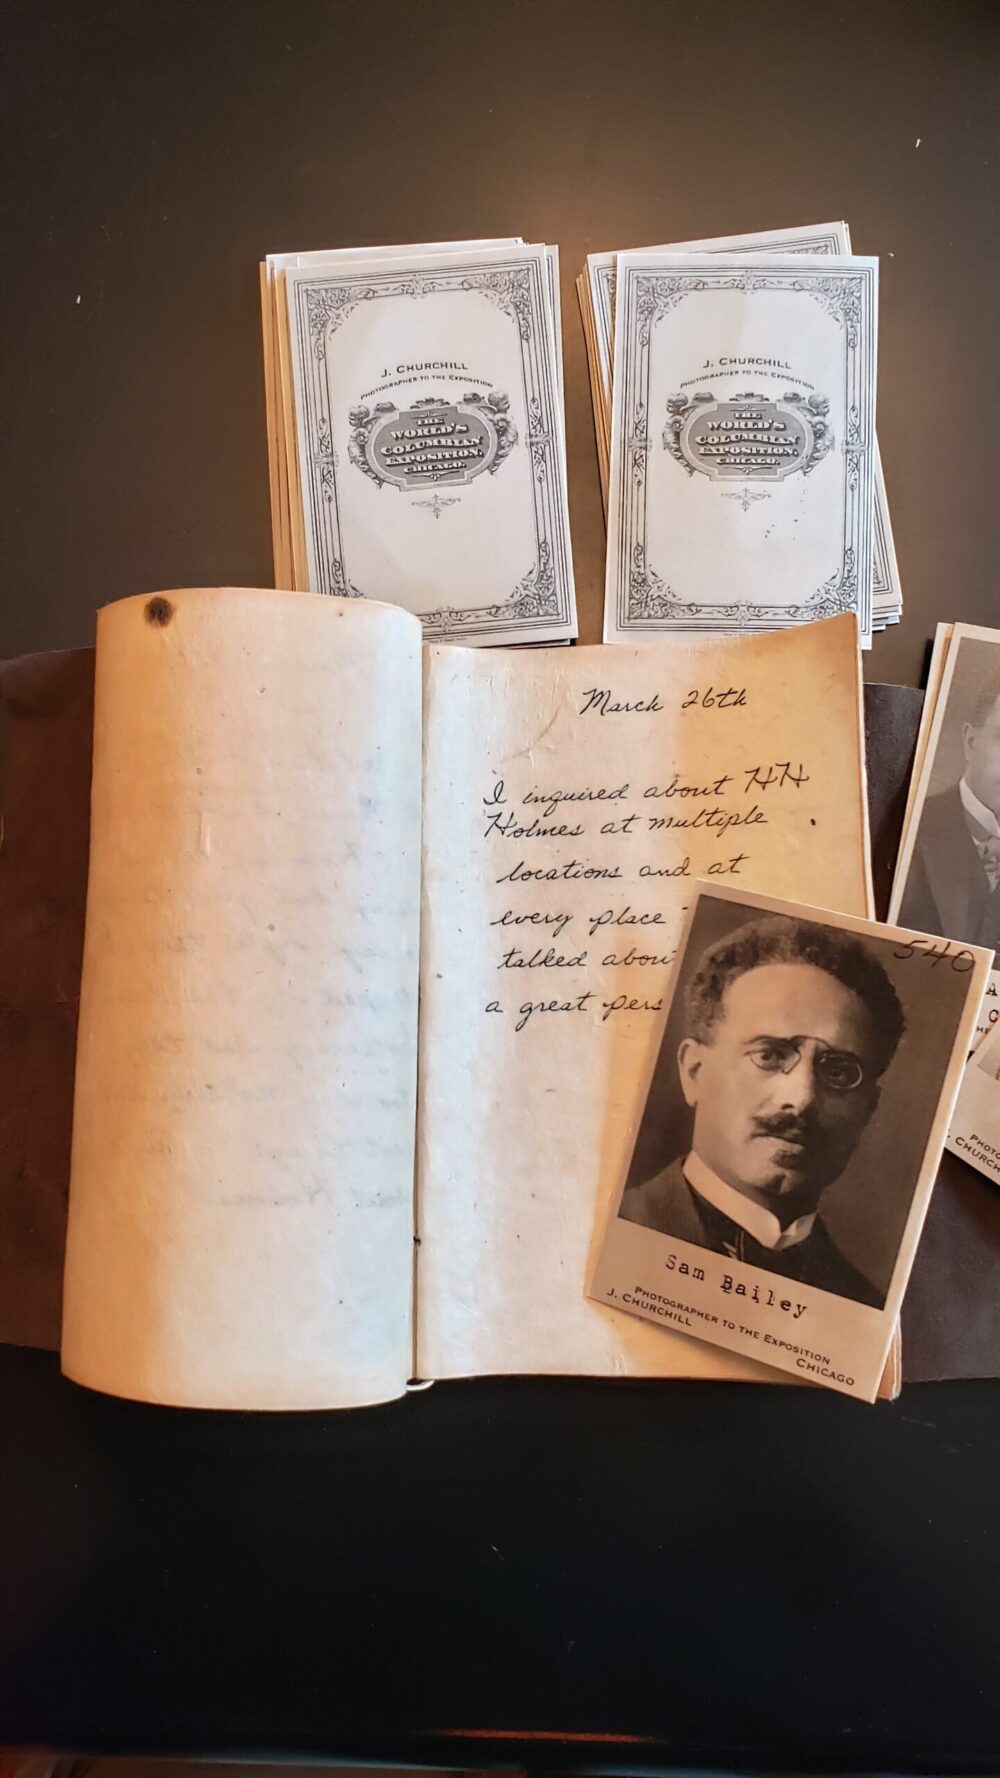 J. CHURCHILL
PHOTOGRAPHER TO THE EXPOSITION
THE
WORLD'S
COLUMBIAN
EXPOSITION,
CHICAGO.
J. CHURCHILL
PHOTOGRAPHER TO THE EXPOSITION
THE
WORLD'S
COLUMBIAN
EXPOSITION,
CHICAGO.
March 26th
I inquired about HH
Holmes at multiple
locations and at
every place
talked about
a great pers
540
Sam Bailey
PHOTOGRAPHER TO THE EXPOSITION
J. CHURCHILL
CHICAGO